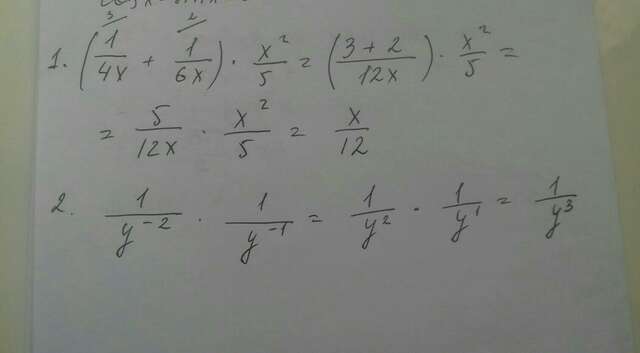 3 2
1. (1/4x + 1/6x) · x²/5 = (3+2/12x) · x²/5 =
= 5/12x · x²/5 = x/12
2. 1/y⁻² · 1/y⁻¹ = 1/y² · 1/y¹ = 1/y³